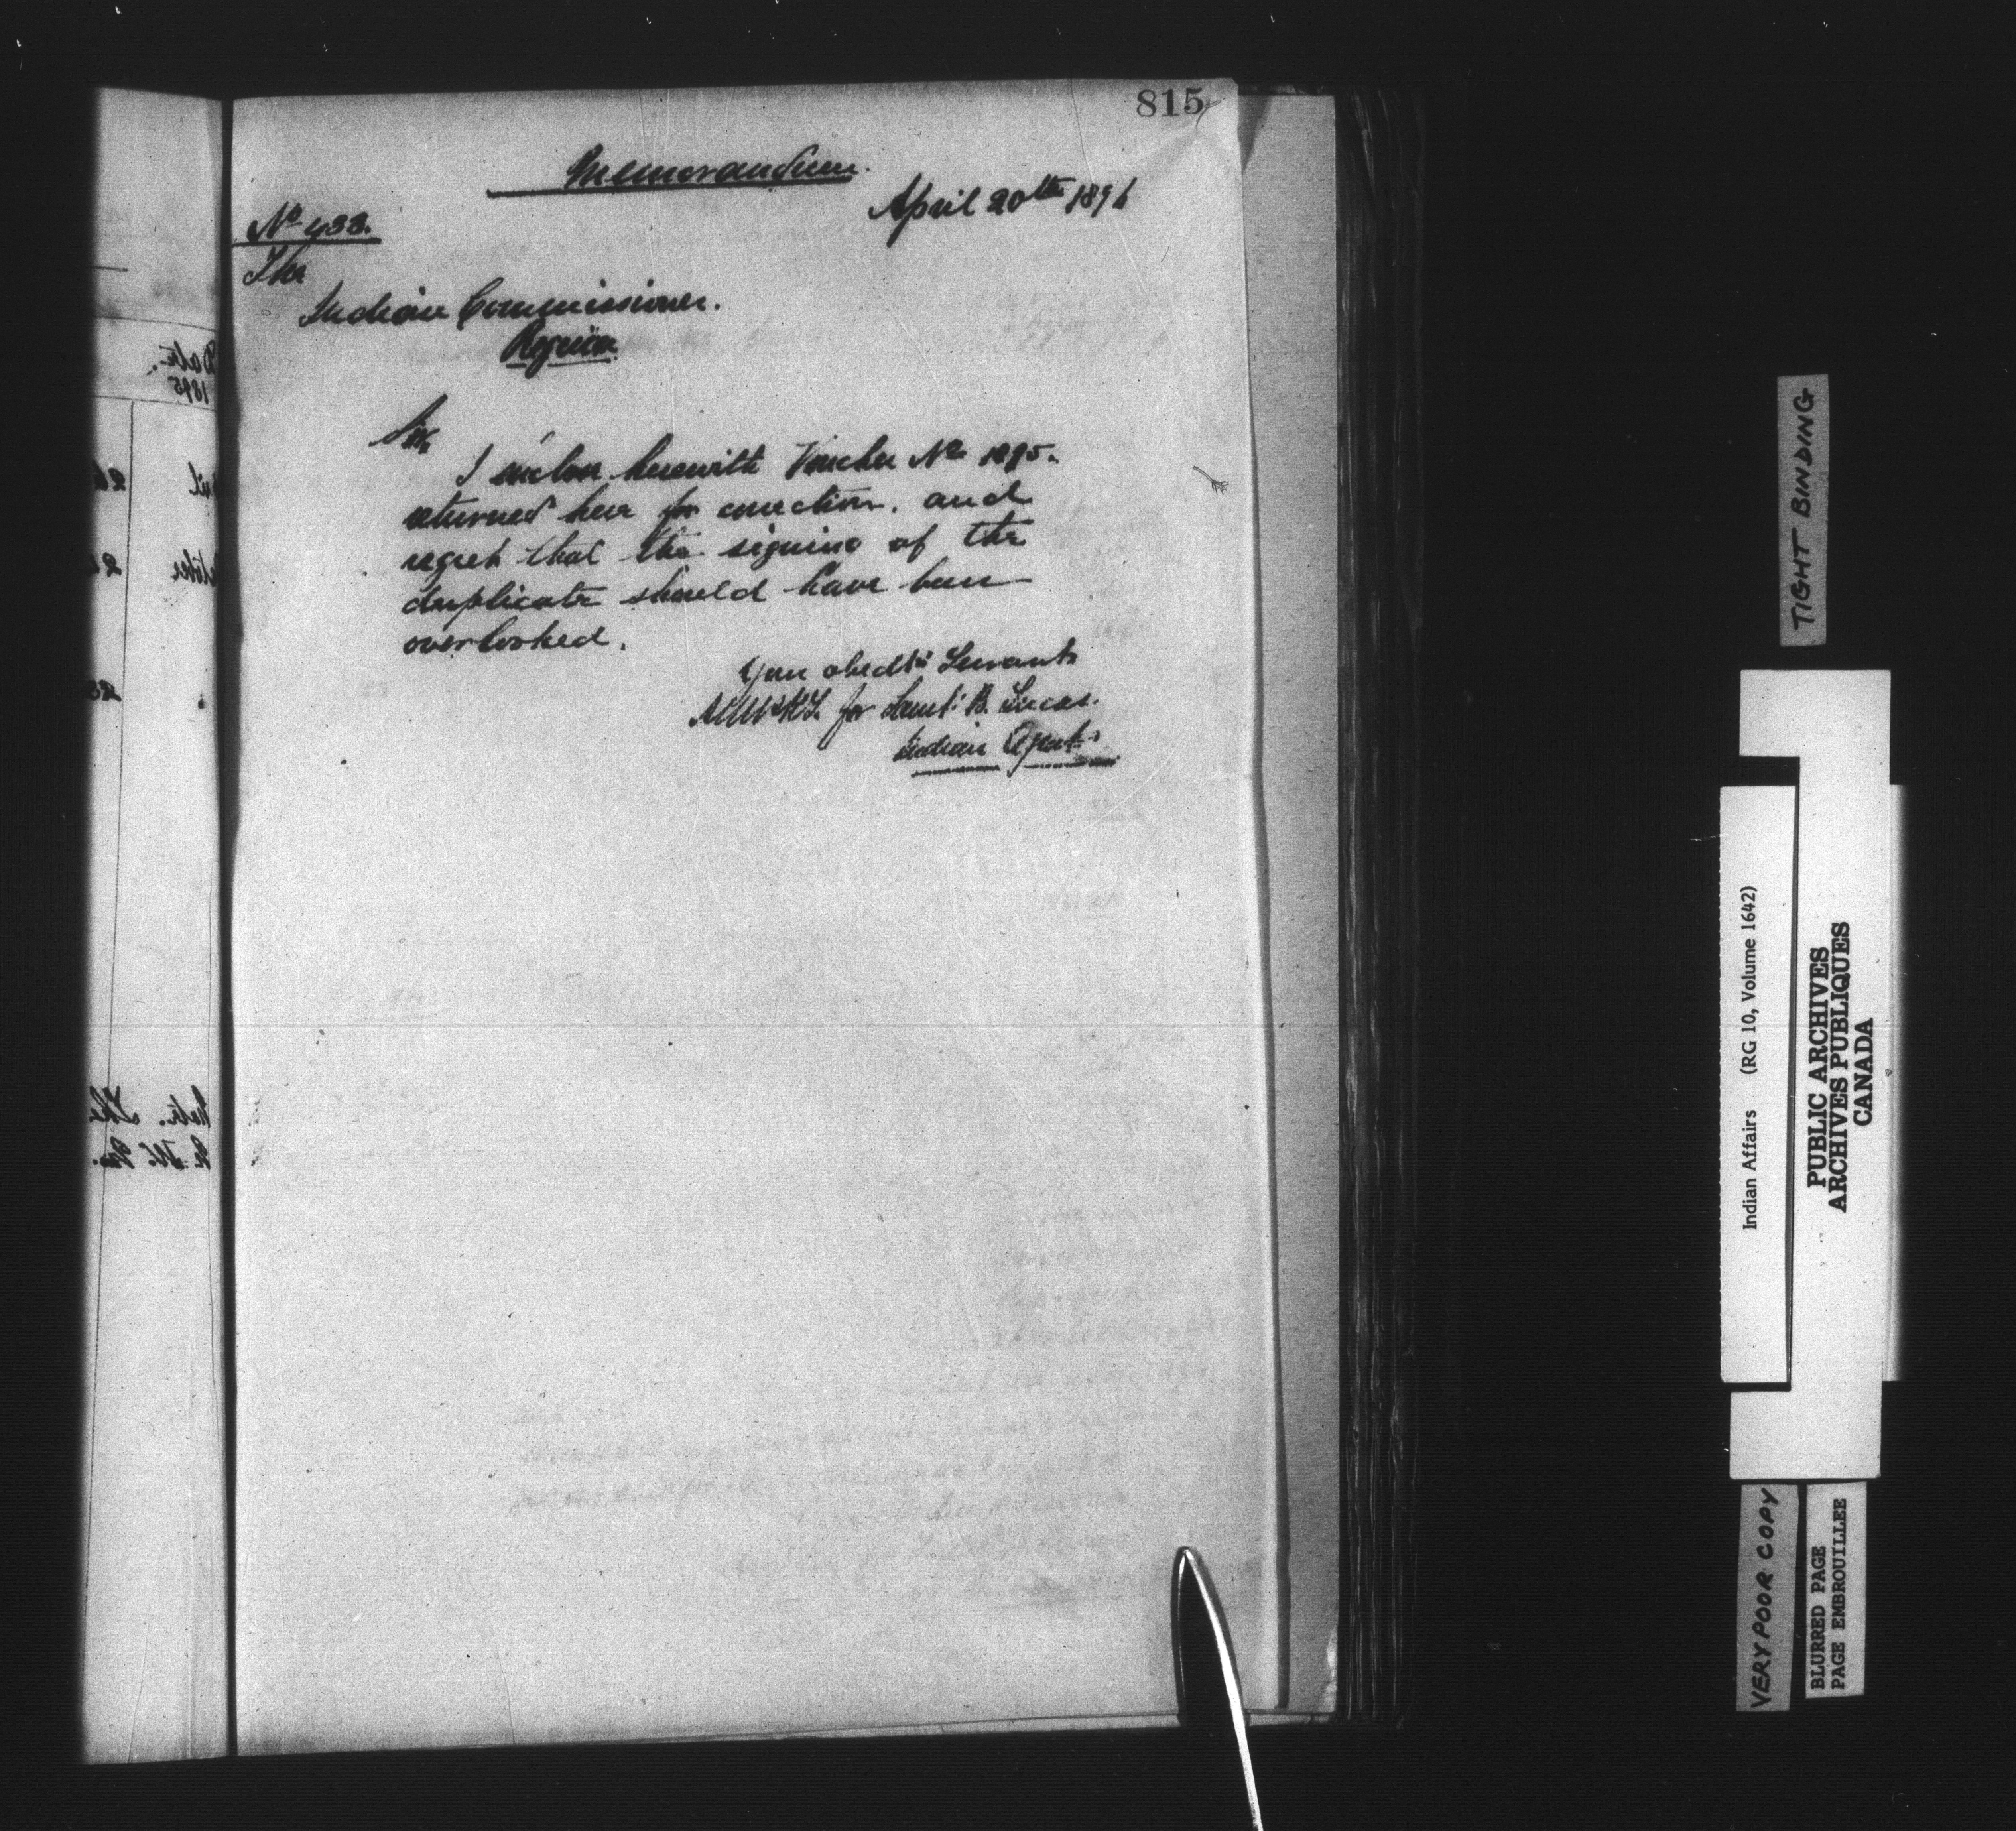 815
Memorandum.
April 20th 1896
No 433.
The
Indian Commissioner.
Regina
Sir,
I enclose herewith Voucher No 1895.
returned here for correction. and
regret that the signing of the
duplicate should have been
overlooked.
Your obedt. Servant
for Saml. B. Lucas.
Indian Agent.
Date.
1895
TIGHT BINDING
Indian Affairs (RG 10, Volume 1642)
PUBLIC ARCHIVES
ARCHIVES PUBLIQUES
CANADA
VERY POOR COPY
BLURRED PAGE
PAGE EMBROUILLEE